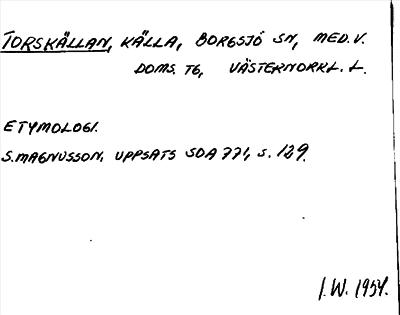 TORSKÄLLAN, KÄLLA, BORGSJÖ SN, MED. V.
DOMS. TG, VÄSTERNORRL. L.
ETYMOLOGI.
S. MAGNUSSON, UPPSATS SOA 771, S. 129.
I. W. 1954.